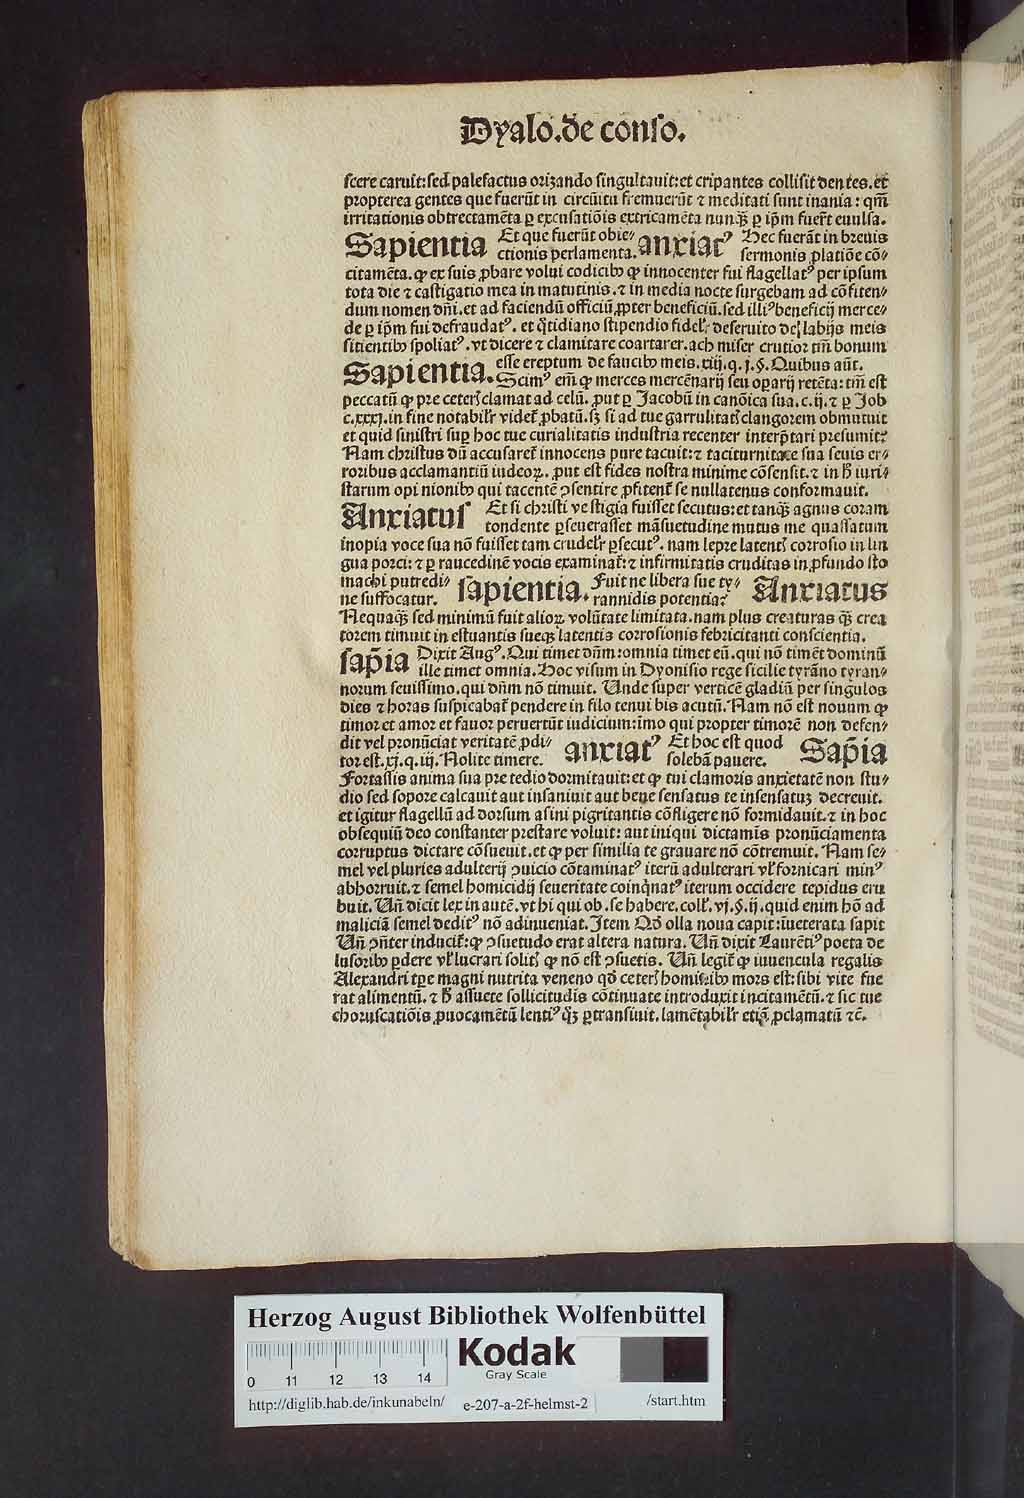 Dyalo.de conso.
scere caruit:sed palefactus orizando singultauit:et cripantes collisit dentes.et
propterea gentes que fuerūt in circūitu fremuerūt ⁊ meditati sunt inania : qm̄
irritationis obtrectamēta ꝑ excusatiōis extricamēta nunqꝫ ꝑ ip̄m fuer̄t euulsa.
Sapientia Et que fuerūt obie⸗ anxiatꝰ Hec fuerāt in breuis
ctionis perlamenta. sermonis ꝓlatiōe cō⸗
citamēta. ꝙ ex suis ꝓbare volui codicibꝫ ꝙ innocenter fui flagellatꝰ per ipsum
tota die ⁊ castigatio mea in matutinis.⁊ in media nocte surgebam ad cōfiten⸗
dum nomen dn̄i.et ad faciendū officiū ꝓpter beneficiū.sed illiꝰ beneficij merce⸗
de ꝑ ip̄m fui defraudatꝰ. et q̄tidiano stipendio fidelr̄ deseruito de labijs meis
sitientibꝫ spoliatꝰ.vt dicere ⁊ clamitare coartarer.ach miser crutior tm̄ bonum
Sapientia. esse ereptum de faucibꝫ meis.xiij.q.j.§.Quibus aūt.
Scimꝰ em̄ ꝙ merces mercēnarij seu oꝑarij retēta: tm̄ est
peccatū ꝙ pre ceterꝭ clamat ad celū. ꝓut ꝑ Jacobū in canōica sua.c.ij.⁊ ꝑ Job
c.xxxj.in fine notabilr̄ videt̄ ꝓbatū.sꝫ si ad tue garrulitatꝭ clangorem obmutuit
et quid sinistri suꝑ hoc tue curialitatis industria recenter interp̄tari presumit?
Nam christus dū accusaret̄ innocens pure tacuit:⁊ taciturnitate sua seuis er⸗
roribus acclamantiū iudeoꝝ. ꝓut est fides nostra minime cōsensit.⁊ in h̄ iuri⸗
starum opi nionibꝫ qui tacentē ꝯsentire ꝓfitent̄ se nullatenus conformauit.
Anxiatus Et si christi vestigia fuisset secutus:et tanqꝫ agnus coram
tondente ꝑseuerasset māsuetudine mutus me quassatum
inopia voce sua nō fuisset tam crudelr̄ ꝑsecutꝰ. nam lepre latentꝭ corrosio in lin
gua porci: ⁊ ꝑ raucedinē vocis examinat̄:⁊ infirmitatis cruditas in ꝓfundo sto
machi putredi⸗ sapientia. Fuit ne libera sue ty⸗ Anxiatus
ne suffocatur. rannidis potentia?
Nequaqꝫ sed minimū fuit alioꝝ volūtate limitata.nam plus creaturas qꝫ crea
torem timuit in estuantis sueqꝫ latentis corrosionis febricitanti conscientia.
sap̄ia Dixit Augꝰ. Qui timet dn̄m:omnia timet eū.qui nō timēt dominū
ille timet omnia.Hoc visum in Dyonisio rege sicilie tyrāno tyran⸗
norum seuissimo.qui dn̄m nō timuit. Unde super verticē gladiū per singulos
dies ⁊ horas suspicabat̄ pendere in filo tenui bis acutū. Nam nō est nouum ꝙ
timor et amor et fauor peruertūt iudicium:īmo qui propter timorē non defen⸗
dit vel pronūciat veritatē ꝓdi⸗ anxiatꝰ Et hoc est quod Sap̄ia
tor est.xj.q.iij.Nolite timere. solebā pauere.
Fortassis anima sua pre tedio dormitauit:et ꝙ tui clamoris anxietatē non stu⸗
dio sed sopore calcauit aut insaniuit aut bene sensatus te insensatuꝫ decreuit.
et igitur flagellū ad dorsum asini pigritantis cōfligere nō formidauit.⁊ in hoc
obsequiū deo constanter prestare voluit: aut iniqui dictamis pronūciamenta
corruptus dictare cōsueuit.et ꝙ per similia te grauare nō cōtremuit. Nam se⸗
mel vel pluries adulterij ꝯuicio cōtaminatꝰ iterū adulterari vl̄ fornicari minꝰ
abhorruit.⁊ semel homicidij seueritate coinq̄natꝰ iterum occidere tepidus eru
buit. Un̄ dicit lex in autē.vt hi qui ob.se habere.coll̄.vj.§.ij.quid enim hō ad
maliciā semel deditꝰ nō adinueniat. Item Qd̄ olla noua capit:īueterata sapit
Un̄ ꝯn̄ter inducit̄:ꝙ ꝯsuetudo erat altera natura. Un̄ dixit Laurētiꝰ poeta de
lusoribꝫ ꝑdere vl̄ lucrari solitꝭ ꝙ nō est ꝯsuetis. Un̄ legit̄ ꝙ iuuencula regalis
Alexandri tp̄e magni nutrita veneno qd̄ ceterꝭ hominibꝫ mors est:sibi vite fue
rat alimentū.⁊ h̄ assuete sollicitudis cōtinuate introduxit incitamētū.⁊ sic tue
choruscatiōis ꝓuocamētū lentiꝰ qꝫ ꝑtransiuit.lamētabilr̄ etiā ꝓclamatū ⁊c̄.
Herzog August Bibliothek Wolfenbüttel
0 11 12 13 14
Kodak
Gray Scale
http://diglib.hab.de/inkunabeln/ e-207-a-2f-helmst-2 /start.htm